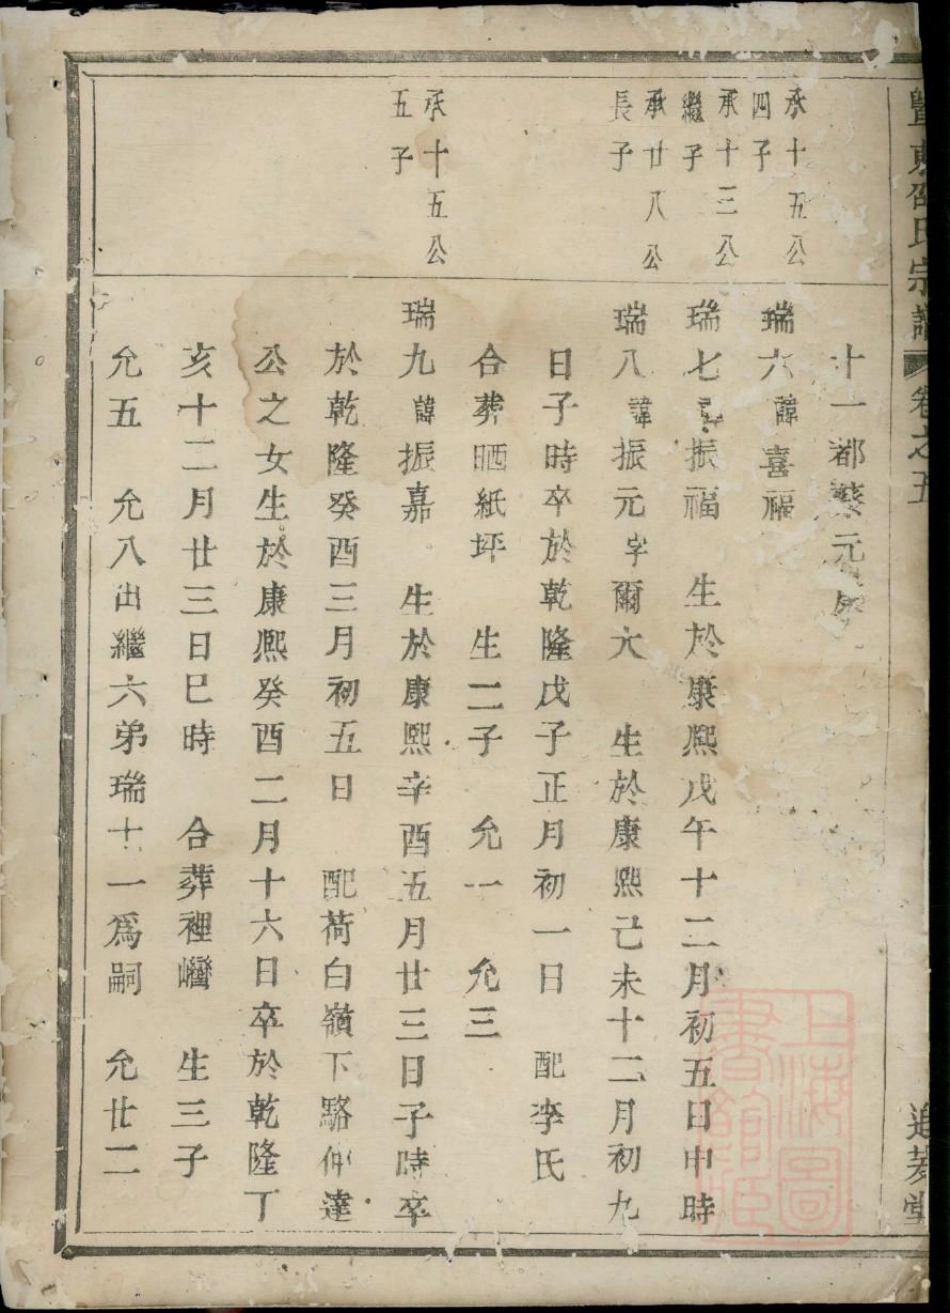 暨東邵氏宗譜 卷之五 追孝堂
十一都蔡元
承十五公
四子
瑞六諱喜福
承十三公
繼子
瑞七諱振福 生於康熙戊午十二月初五日申時
承廿八公
長子
瑞八諱振元字爾大 生於康熙己未十二月初九
日子時卒於乾隆戊子正月初一日 配李氏
合葬晒紙坪 生二子 允一 允三
承十五公
五子
瑞九諱振嘉 生於康熙辛酉五月廿三日子時卒
於乾隆癸酉三月初五日 配荷白嶺下駱仲達
公之女生於康熙癸酉二月十六日卒於乾隆丁
亥十二月廿三日巳時 合葬裡巒 生三子
允五 允八出繼六弟瑞十一爲嗣 允廿二
上海圖書館藏